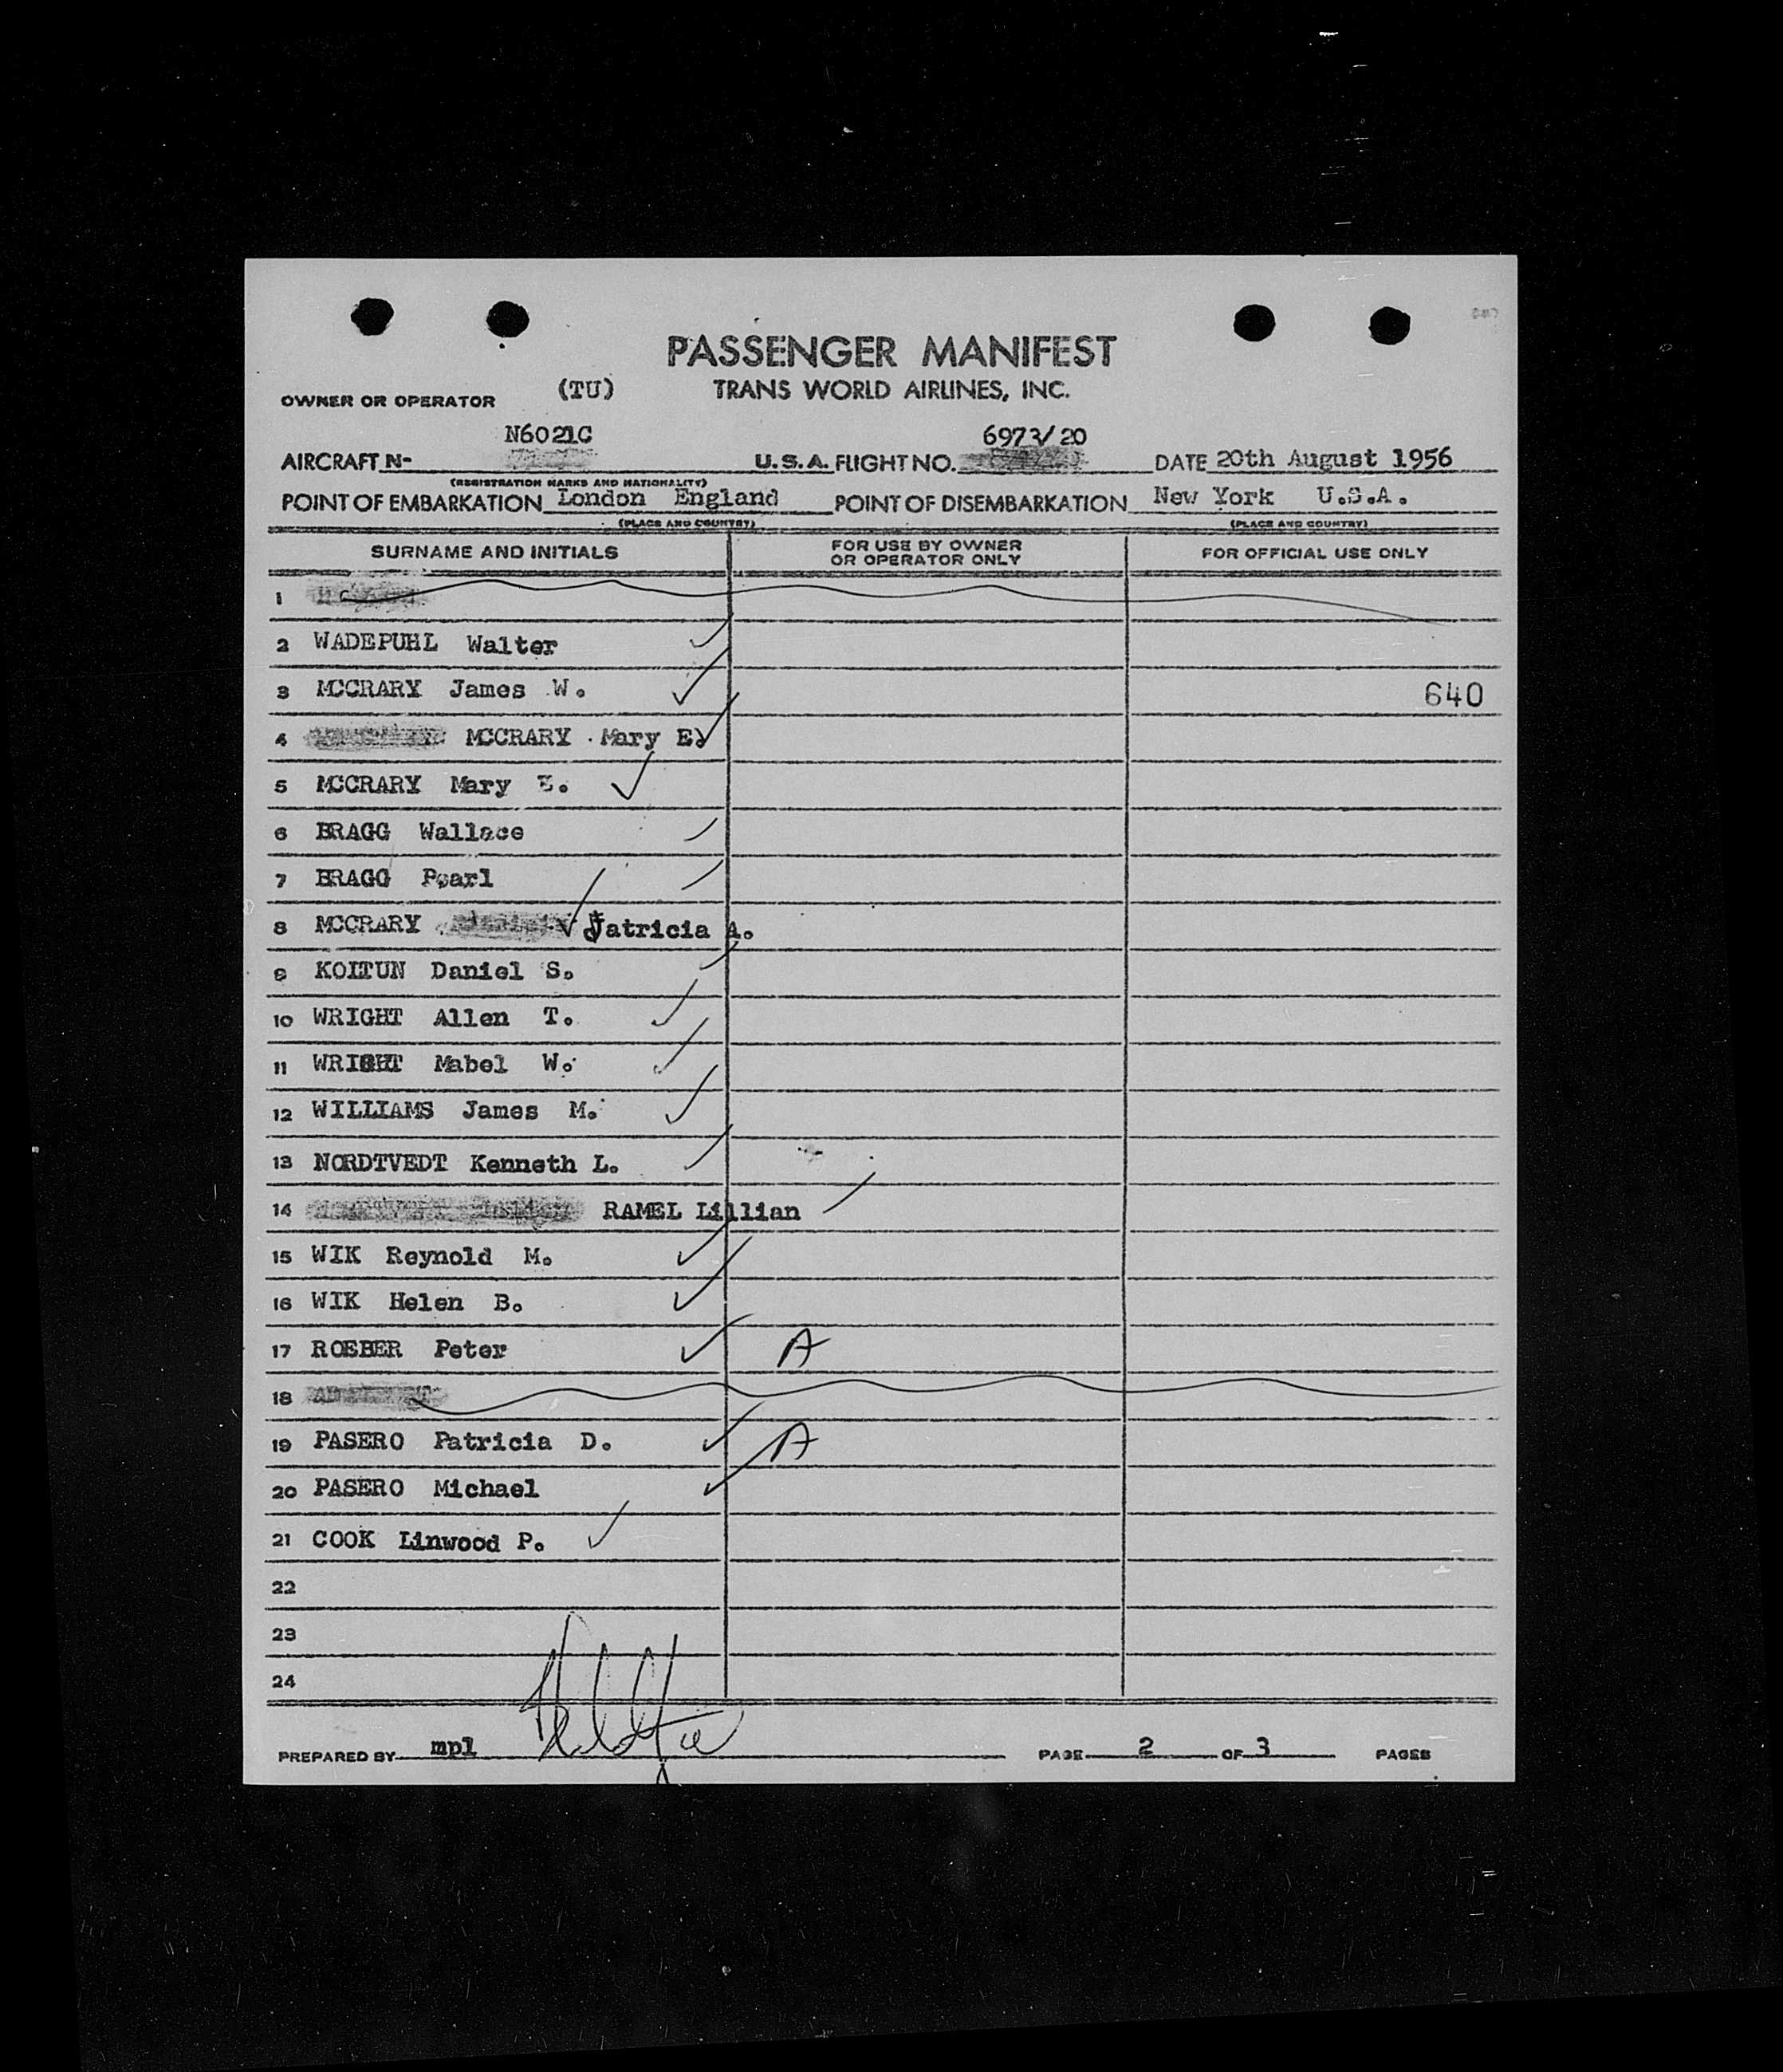 PASSENGER MANIFEST
OWNER OR OPERATOR (TU) TRANS WORLD AIRLINES, INC.
N6021C 6973/20
AIRCRAFT N- U.S.A. FLIGHT NO. DATE 20th August 1956
(REGISTRATION MARKS AND NATIONALITY)
POINT OF EMBARKATION London England POINT OF DISEMBARKATION New York U.S.A.
(PLACE AND COUNTRY) (PLACE AND COUNTRY)
SURNAME AND INITIALS FOR USE BY OWNER OR OPERATOR ONLY FOR OFFICIAL USE ONLY
1
2 WADEPUHL Walter
3 MCCRARY James W. 640
4 MCCRARY Mary E.
5 MCCRARY Mary E.
6 BRAGG Wallace
7 BRAGG Pearl
8 MCCRARY Patricia A.
9 KOITUN Daniel S.
10 WRIGHT Allen T.
11 WRIGHT Mabel W.
12 WILLIAMS James M.
13 NORDTVEDT Kenneth L.
14 RAMEL Lillian
15 WIK Reynold M.
16 WIK Helen B.
17 ROEBER Peter A
18
19 PASERO Patricia D. A
20 PASERO Michael
21 COOK Linwood P.
22
23
24
PREPARED BY mpl PAGE 2 OF 3 PAGES